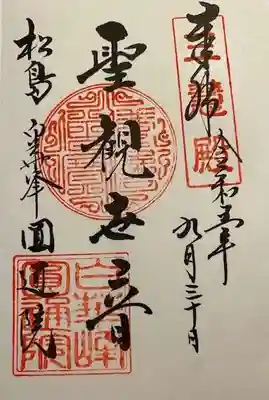 奉拝 令和五年
九月三十日
聖観世音
松島 白華峰 圓通院
三慧殿
白華峰
圓通院